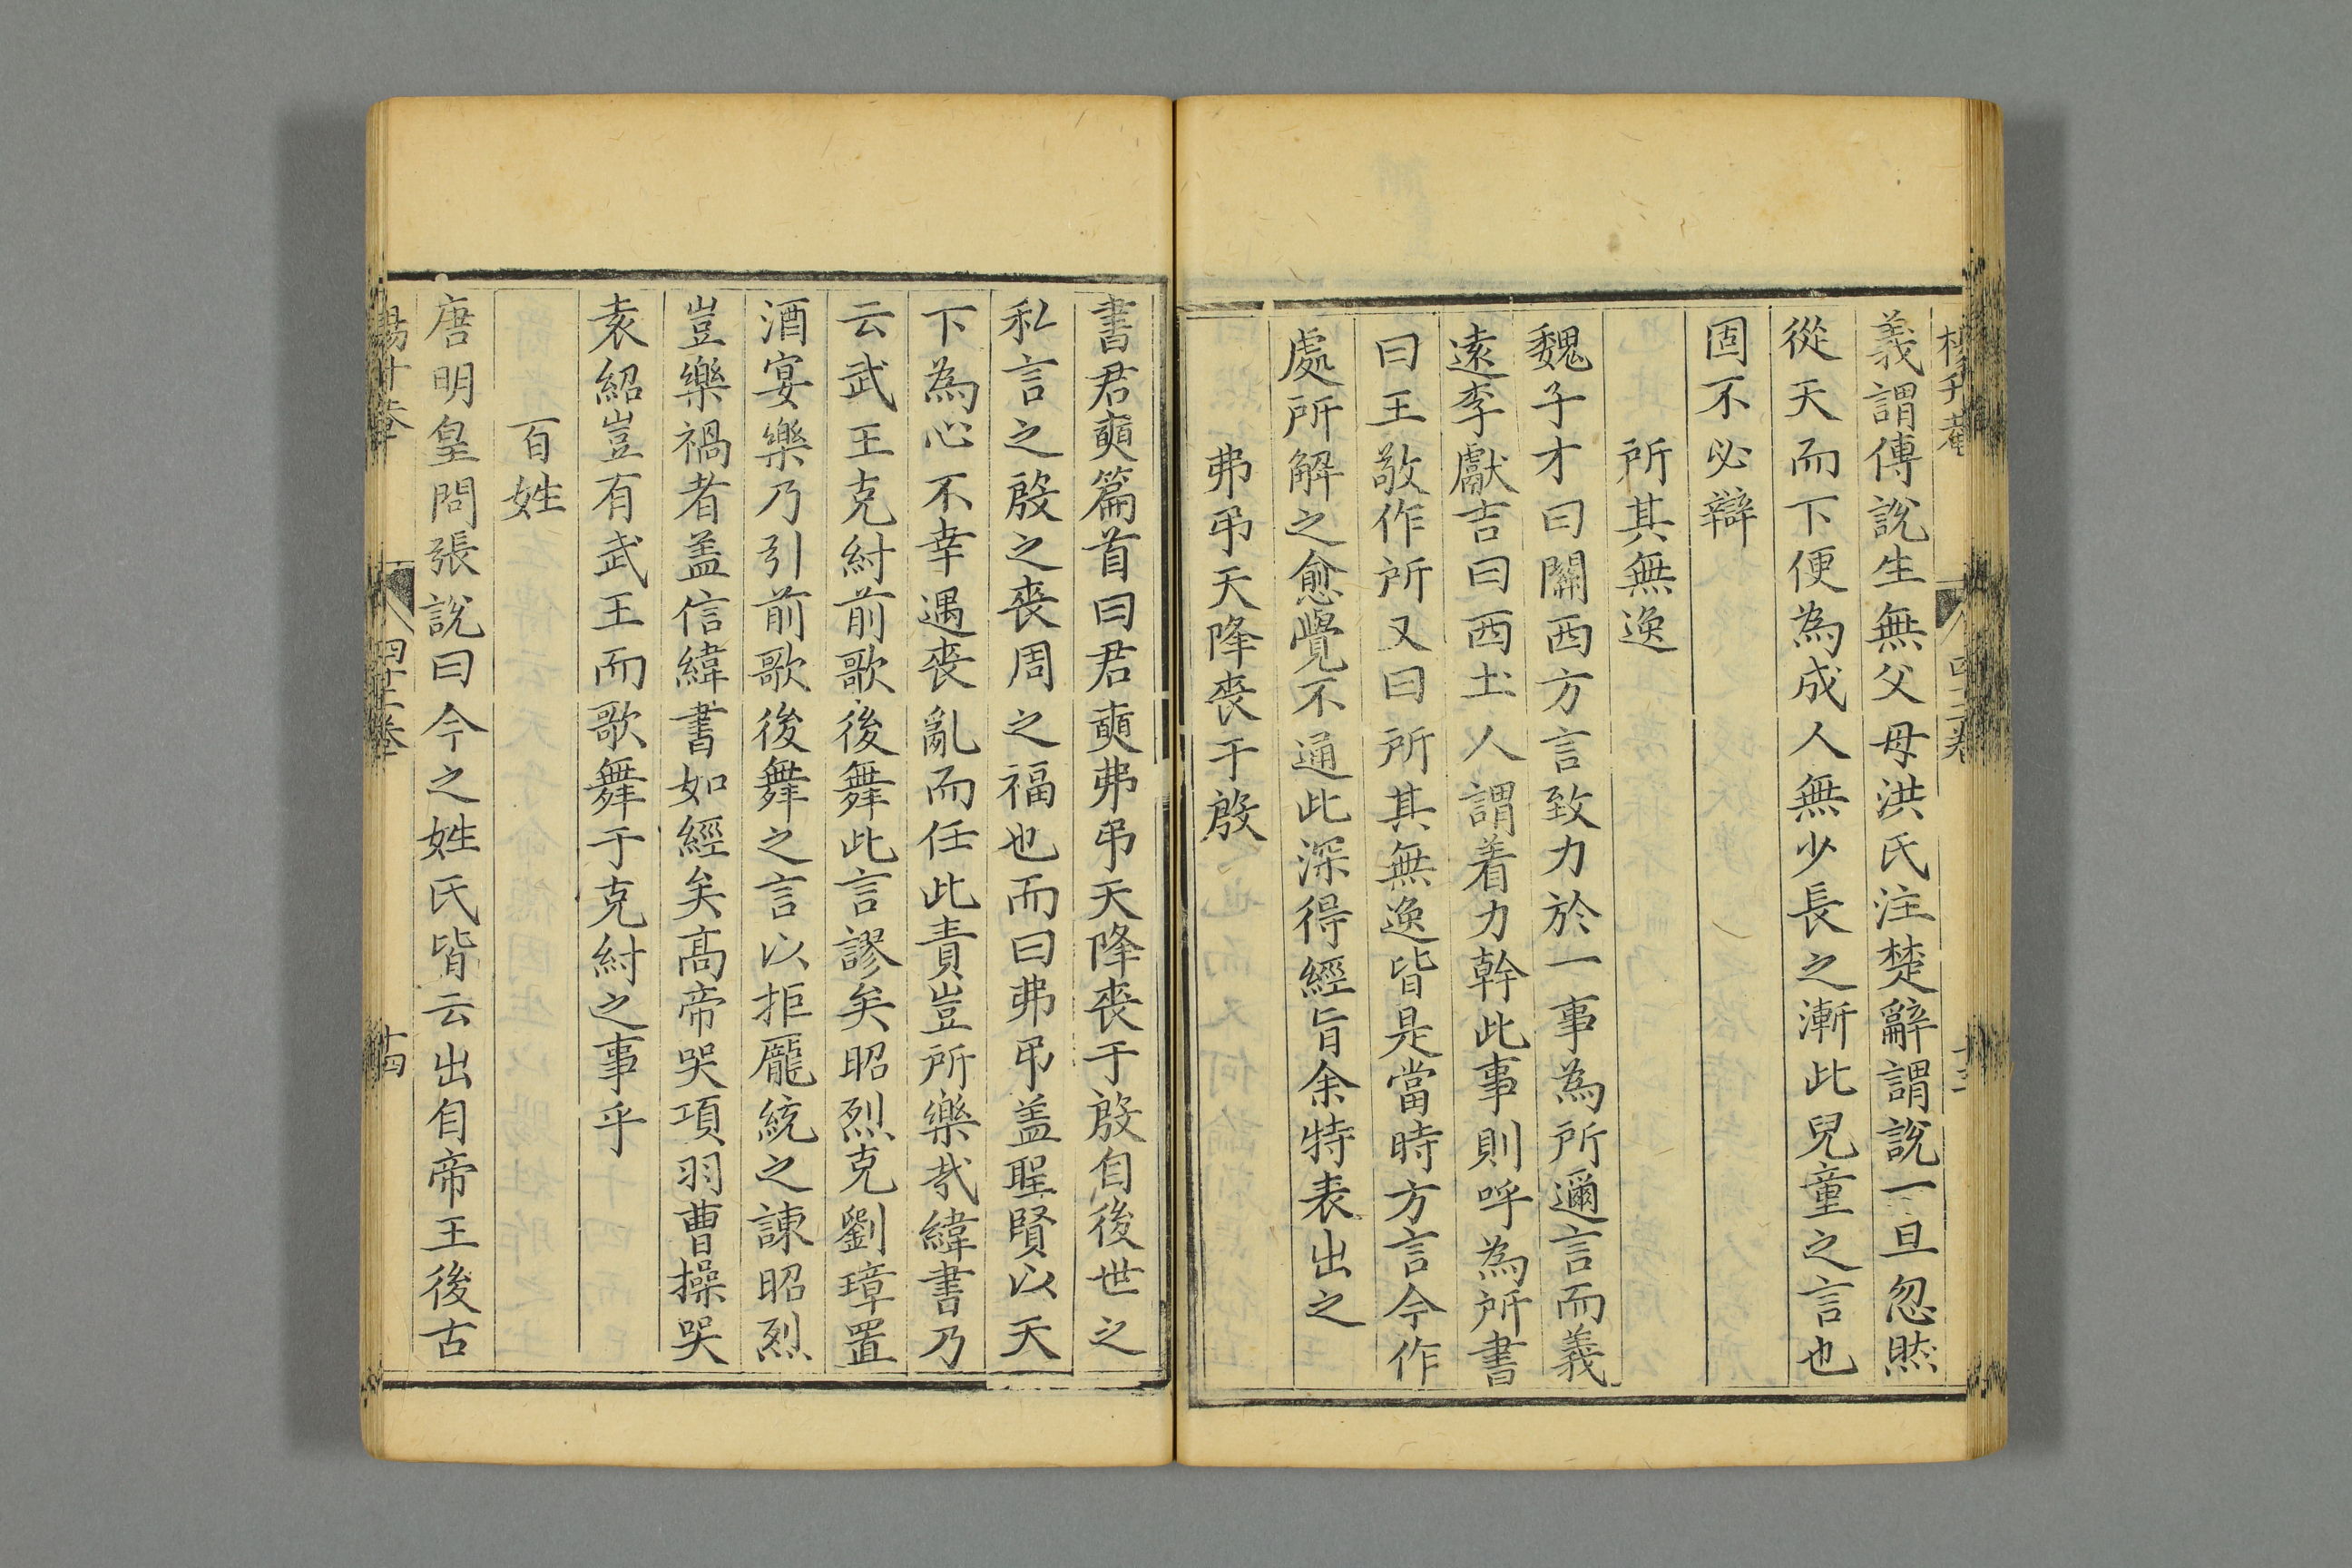 義謂傅說生無父母洪氏注楚辭謂說一旦忽然
從天而下便為成人無少長之漸此兒童之言也
固不必辯
所其無逸
魏子才曰關西方言致力於一事為所邇言而義
遠李獻吉曰西土人謂着力幹此事則呼為所書
曰王敬作所又曰所其無逸皆是當時方言今作
處所解之愈覺不通此深得經旨余特表出之
弗弔天降喪于殷
書君奭篇首曰君奭弗弔天降喪于殷自後世之
私言之殷之喪周之福也而曰弗弔盖聖賢以天
下為心不幸遇喪亂而任此責豈所樂哉緯書乃
云武王克紂前歌後舞此言謬矣昭烈克劉璋置
酒宴樂乃引前歌後舞之言以拒龐統之諫昭烈
豈樂禍者盖信緯書如經矣高帝哭項羽曹操哭
袁紹豈有武王而歌舞于克紂之事乎
百姓
唐明皇問張說曰今之姓氏皆云出自帝王後古